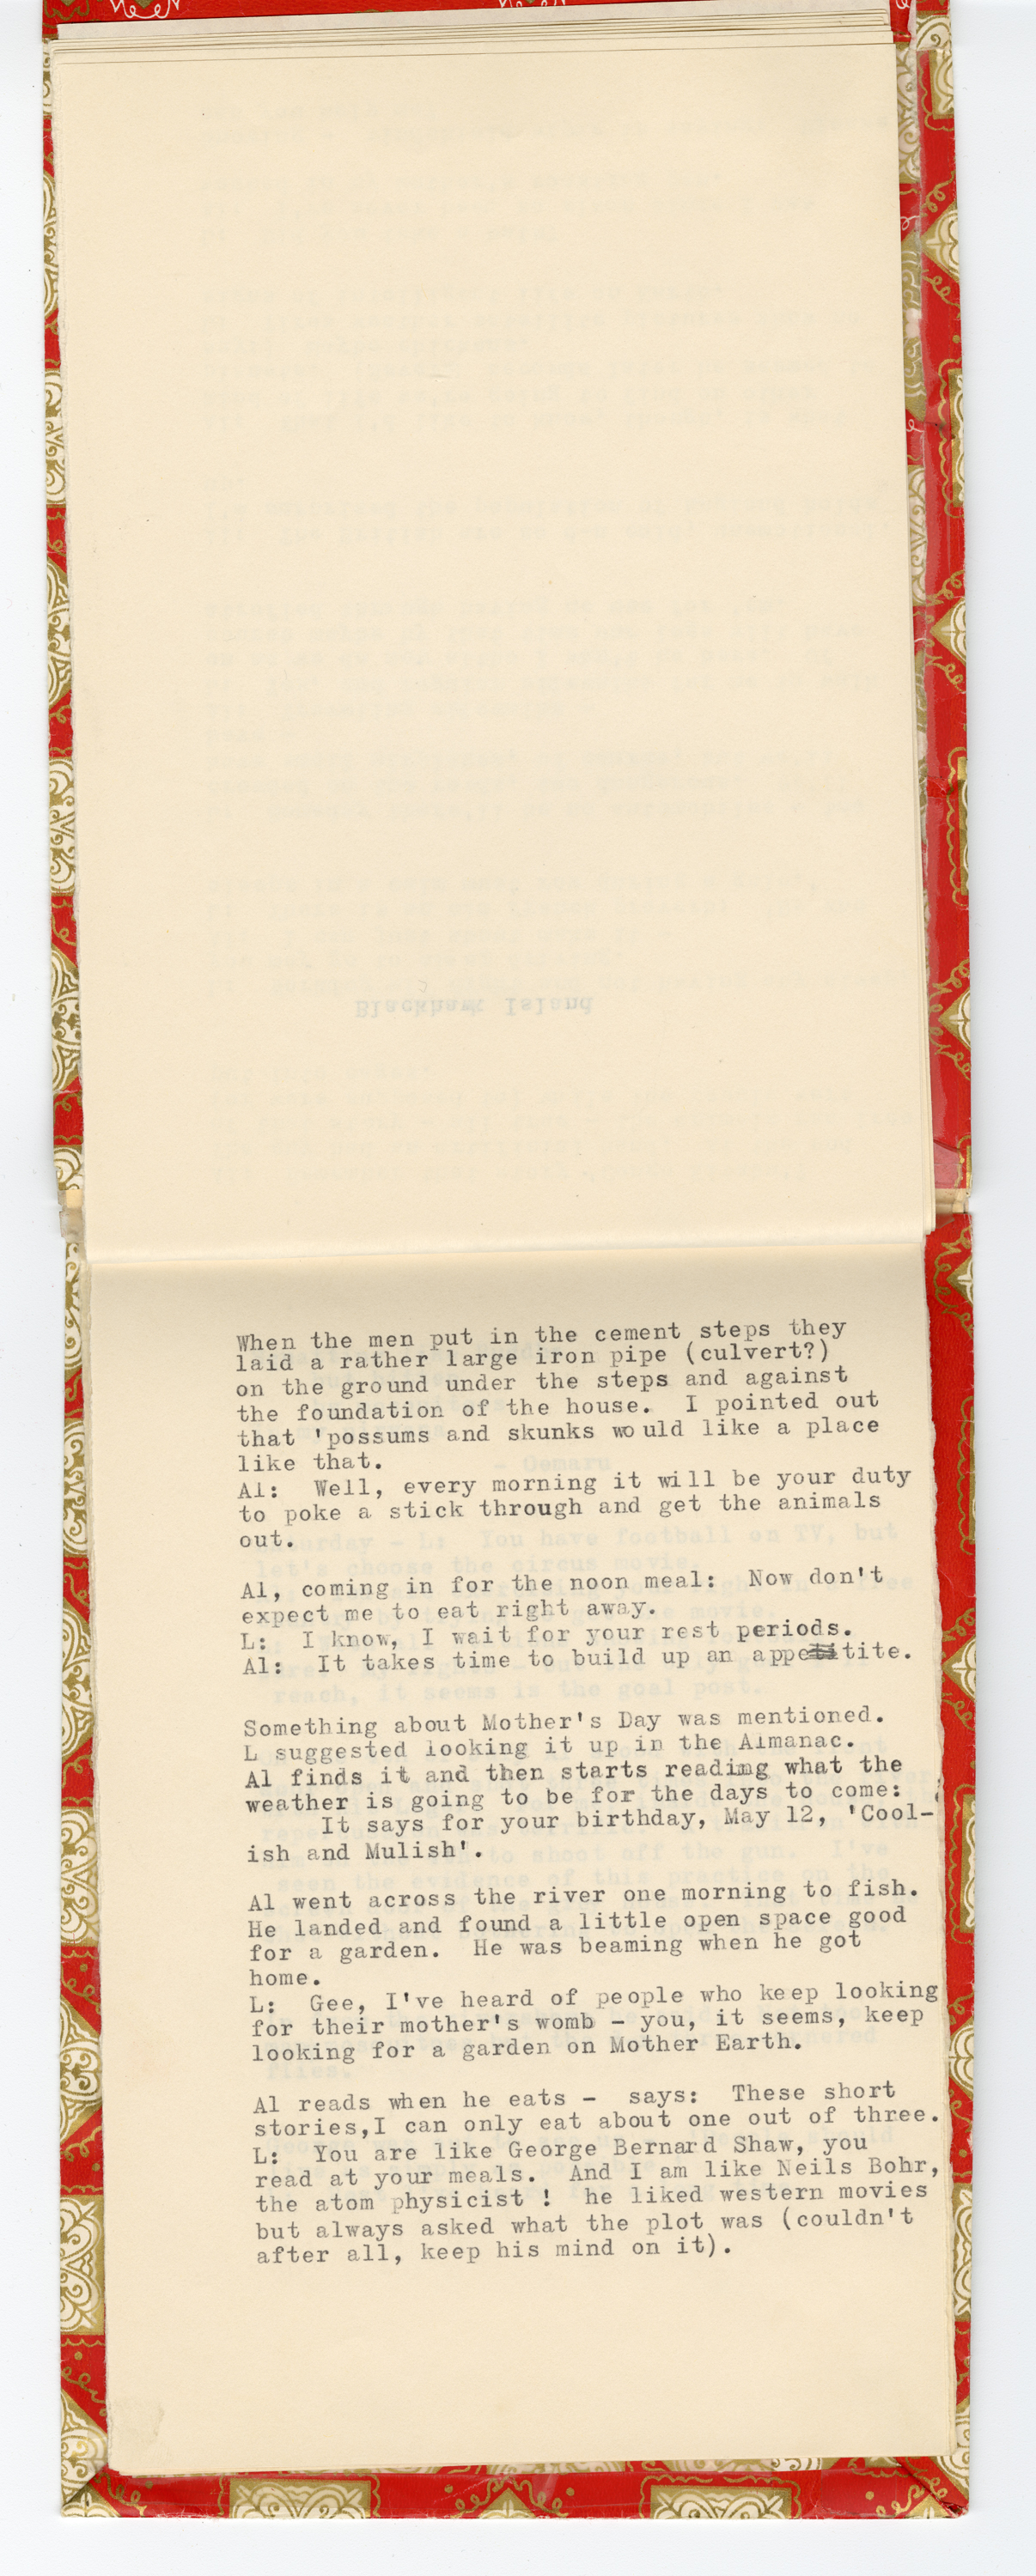 Blackhawk Island
When the men put in the cement steps they
laid a rather large iron pipe (culvert?)
on the ground under the steps and against
the foundation of the house.  I pointed out
that 'possums and skunks would like a place
like that.
Al:  Well, every morning it will be your duty
to poke a stick through and get the animals
out.
Al, coming in for the noon meal:  Now don't
expect me to eat right away.
L:  I know, I wait for your rest periods.
Al:  It takes time to build up an appetite.
Something about Mother's Day was mentioned.
L suggested looking it up in the Almanac.
Al finds it and then starts reading what the
weather is going to be for the days to come:
It says for your birthday, May 12, 'Cool-
ish and Mulish'.
Al went across the river one morning to fish.
He landed and found a little open space good
for a garden.  He was beaming when he got
home.
L:  Gee, I've heard of people who keep looking
for their mother's womb - you, it seems, keep
looking for a garden on Mother Earth.
Al reads when he eats -  says:  These short
stories,I can only eat about one out of three.
L:  You are like George Bernard Shaw, you
read at your meals.  And I am like Neils Bohr,
the atom physicist !  he liked western movies
but always asked what the plot was (couldn't
after all, keep his mind on it).